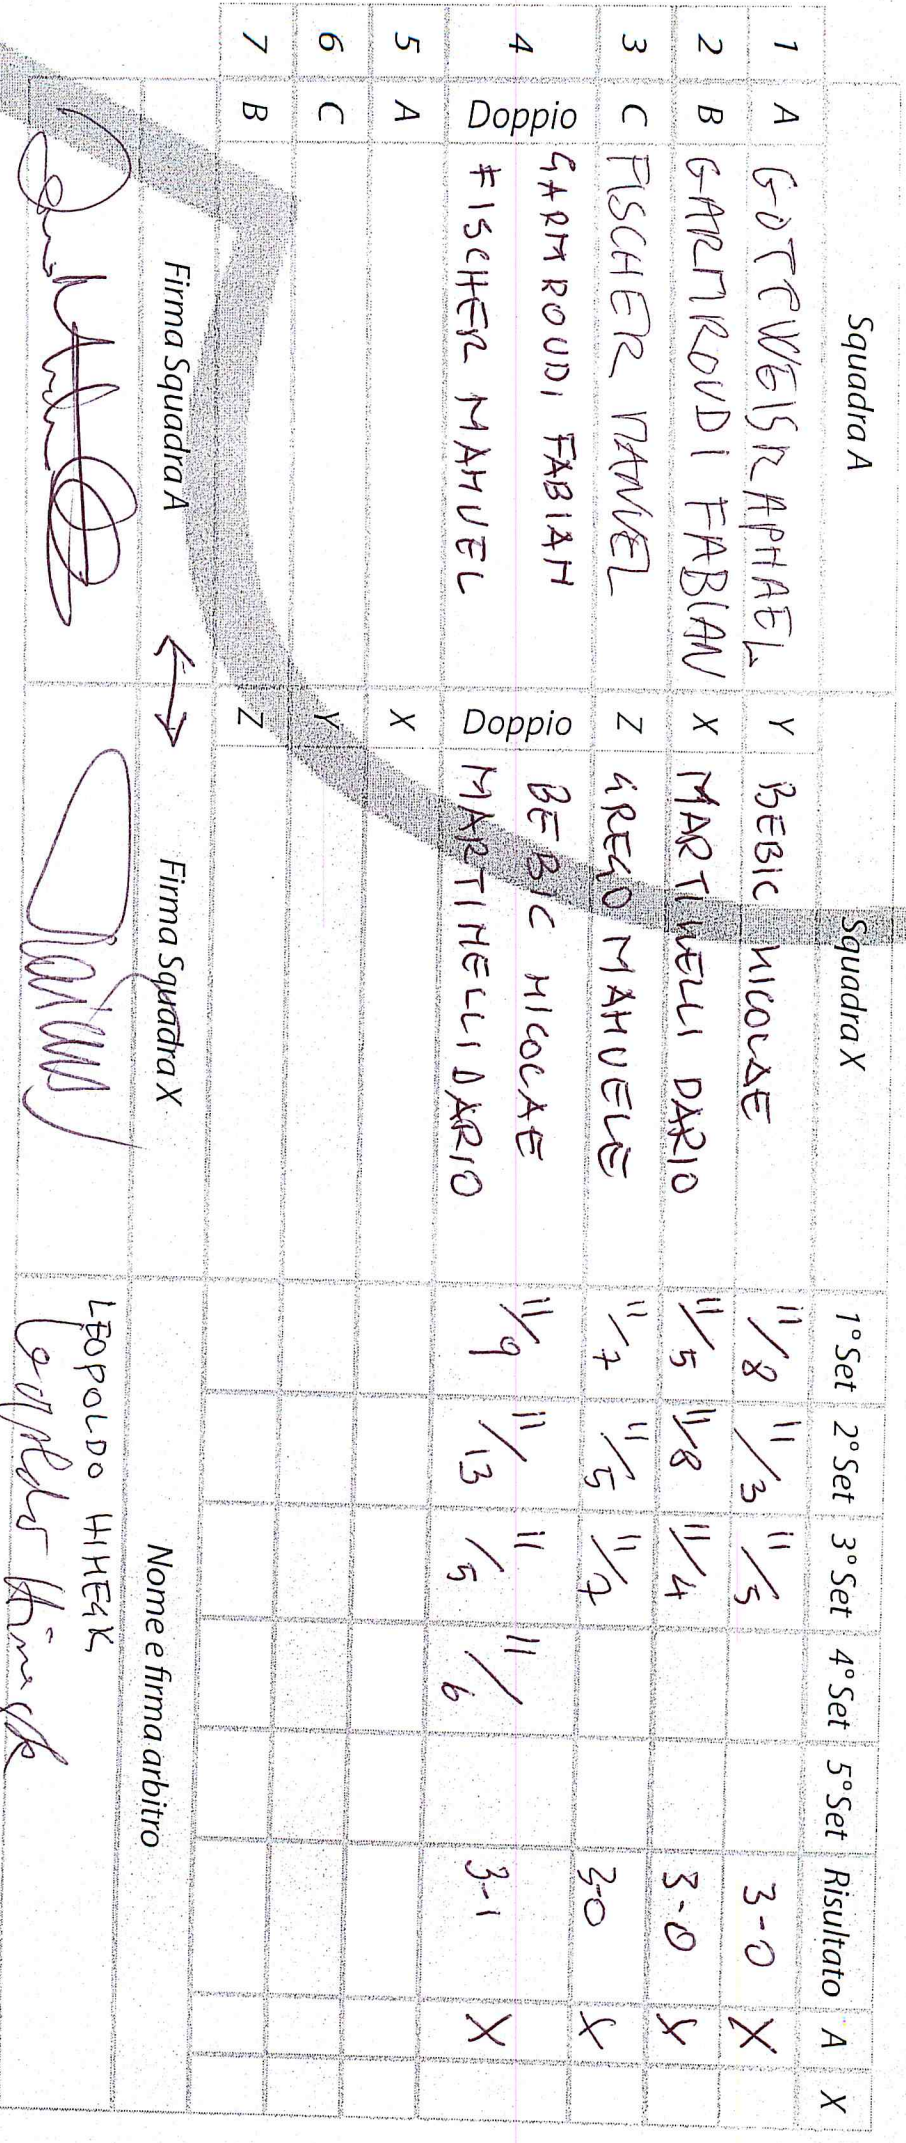 Squadra A Squadra X 1° Set 2° Set 3° Set 4° Set 5° Set Risultato A X
1 A GOTTWEIS RAPHAEL Y BEBIC NICOLAE 11/8 11/3 11/5 3-0 X
2 B GARMROUDI FABIAN X MARTINELLI DARIO 11/5 11/8 11/4 3-0 X
3 C FISCHER MANUEL Z GREGO MANUELE 11/7 11/5 11/7 3-0 X
4 Doppio GARMROUDI FABIAN Doppio BEBIC NICOLAE 11/9 11/13 11/5 11/6 3-1 X
FISCHER MANUEL MARTINELLI DARIO
5 A X
6 C Y
7 B Z
Firma Squadra A ↔ Firma Squadra X Nome e firma arbitro
LEOPOLDO